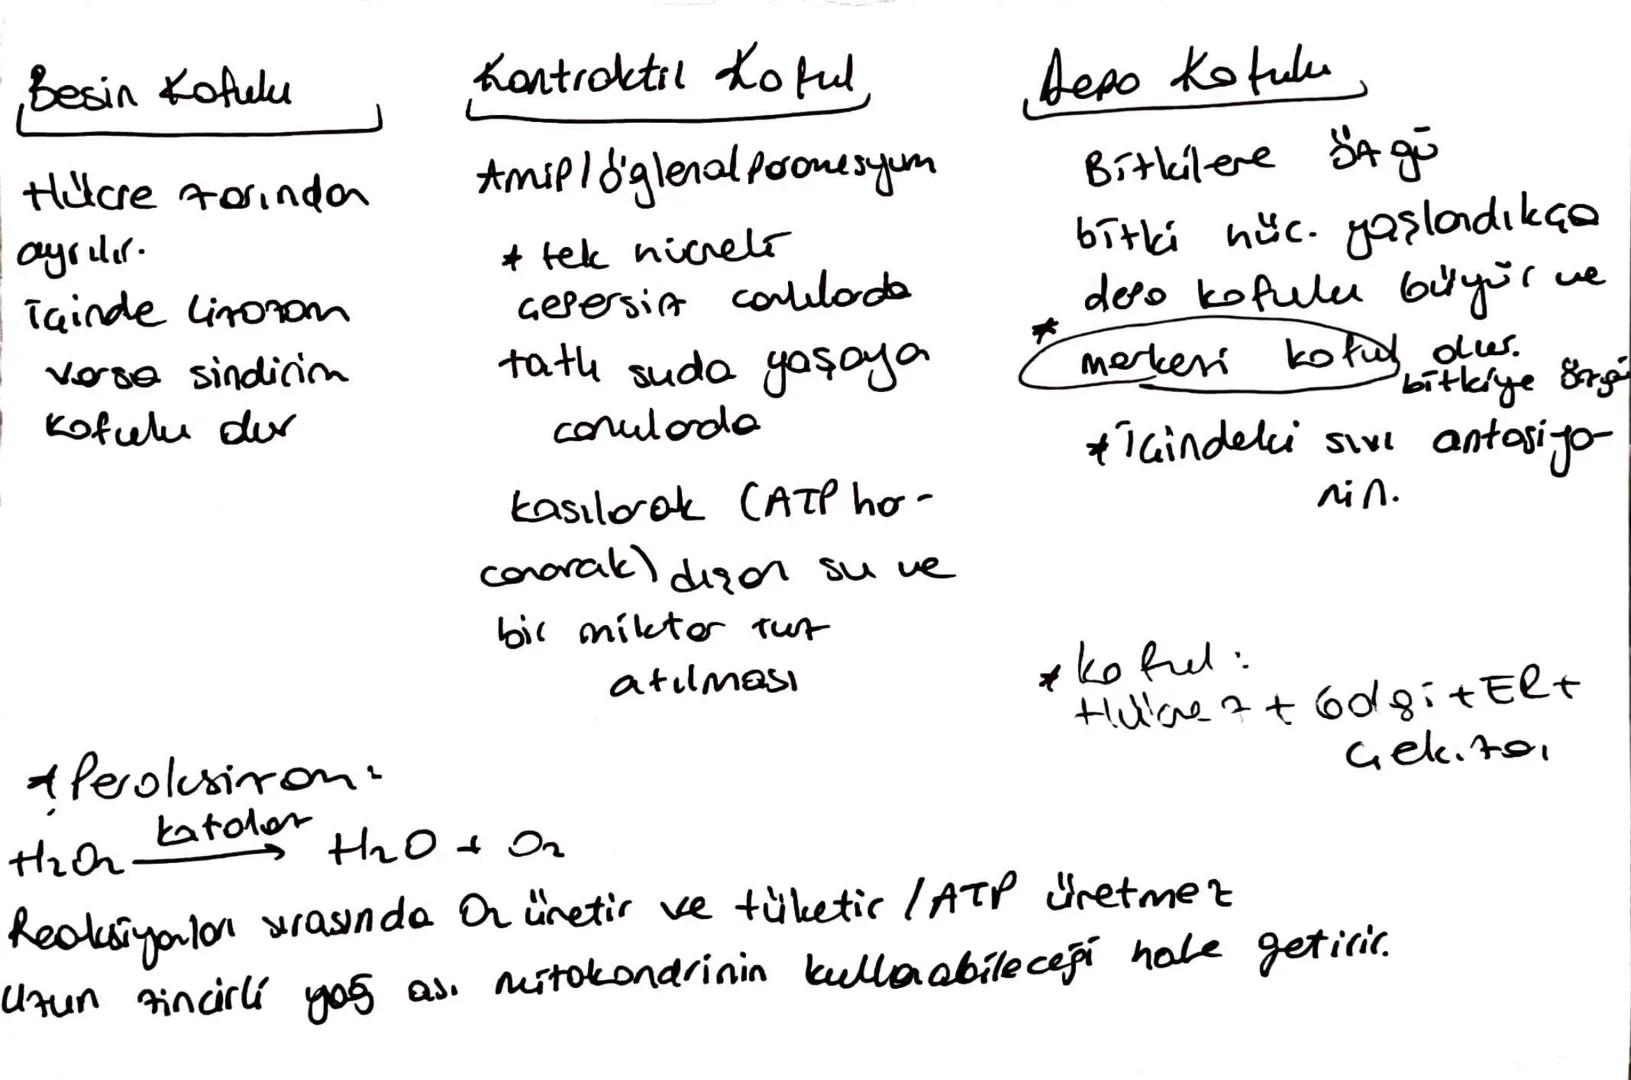 Besin Kofulu
Hücre zarından
ayrılır.
içinde lizozom
varsa sindirim
kofulu dur
Kontraktil Koful
Amip/öglena/paramesyum
* tek hücreli
çepersiz canlılarda
tatlı suda yaşaya
canularda
kasılarak (ATP ha-
canarak) dışarı su ve
bir miktar tuz
atılması
Depo Kofulu
Bitkilere özgü
bitki hüc. yaşlandıkça
depo kofulu büyür ve
* merkezi koful olur.
bitkiye özgü
* içindeki sıvı antosiya-
nin.
* koful:
Hücre z + Golgi + ER +
Çek. zarı
* Peroksizom:
katalaz
H2O2 → H2O + O2
Reaksiyonları sırasında O2 üretir ve tüketir / ATP üretmez
Uzun zincirli yağ as. mitokondrinin kullanabileceği hale getirir.